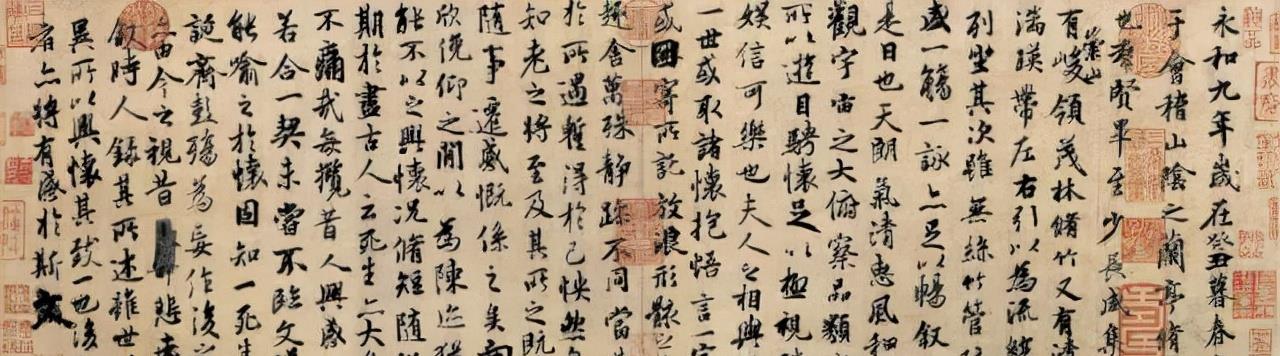 永和九年歲在癸丑暮春
于會稽山陰之蘭亭脩
也羣賢畢至少長咸集
有崇山峻領茂林脩竹又有清
湍暎帶左右引以為流觴
列坐其次雖無絲竹管
盛一觴一詠亦足以暢叙
是日也天朗氣清惠風和
觀宇宙之大俯察品類
所以遊目騁懷足以極視
娛信可樂也夫人之相與
一世或取諸懷抱悟言一室
或因寄所託放浪形骸之
趣舍萬殊靜躁不同當
於所遇蹔得於己怏然
知老之將至及其所之既
隨事遷感慨係之矣向
欣俛仰之閒以為陳迹猶
能不以之興懷況脩短隨
期於盡古人云死生亦大
不痛哉每攬昔人興感
若合一契未嘗不臨文
能喻之於懷固知一死生
誕齊彭殤為妄作後之
亦由今之視昔悲夫
叙時人錄其所述雖世
異所以興懷其致一也後
者亦將有感於斯文